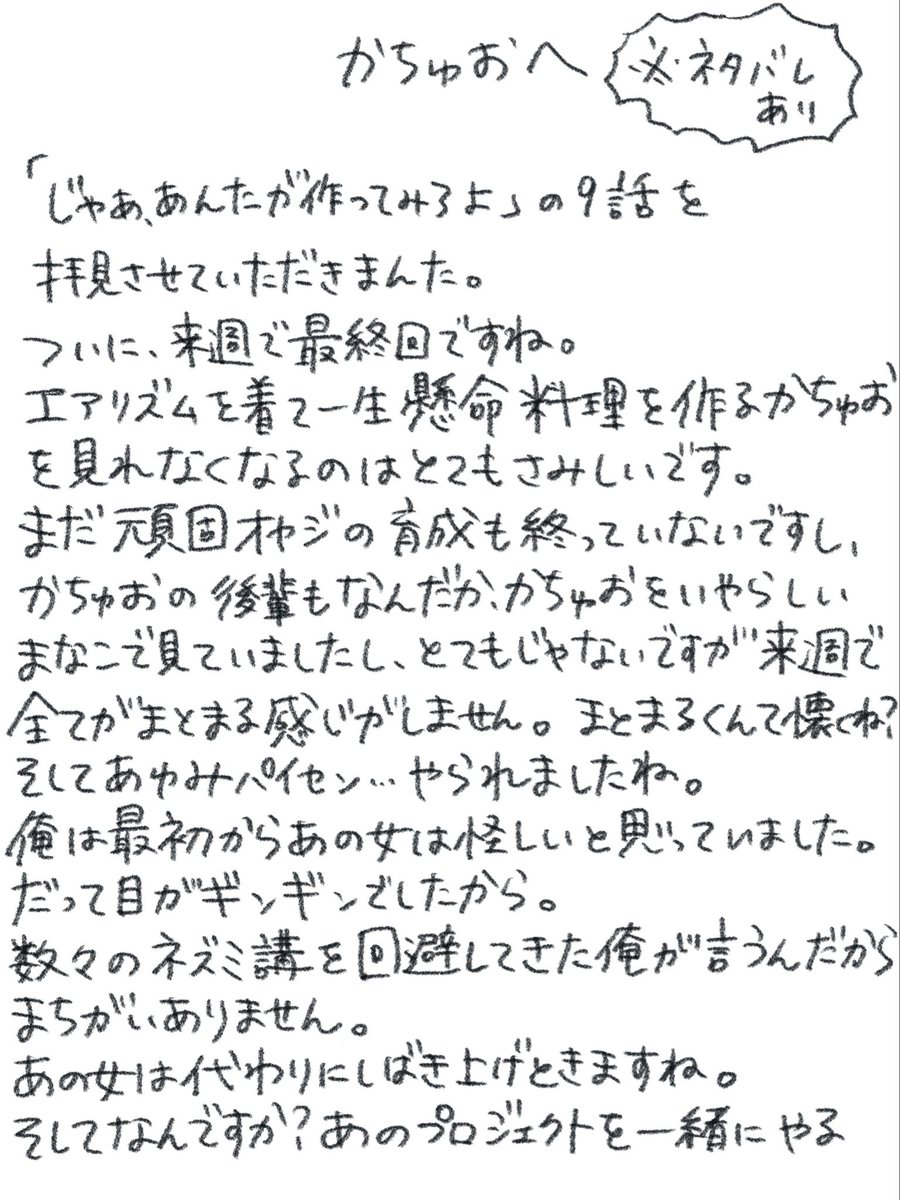 かちゅおへ
※ネタバレ
あり
「じゃあ、あんたが作ってみろよ」の9話を
拝見させていただきまんた。
ついに、来週で最終回ですね。
エアリズムを着て一生懸命料理を作るかちゅお
を見れなくなるのはとてもさみしいです。
まだ頑固オヤジの育成も終っていないですし、
かちゅおの後輩もなんだか、かちゅおをいやらしい
まなこで見ていましたし、とてもじゃないですが来週で
全てがまとまる感じがしません。まとまるくんて懐くね?
そしてあゆみパイセン…やられましたね。
俺は最初からあの女は怪しいと思っていました。
だって目がギンギンでしたから。
数々のネズミ講を回避してきた俺が言うんだから
まちがいありません。
あの女は代わりにしばき上げときますね。
そしてなんですか?あのプロジェクトを一緒にやる